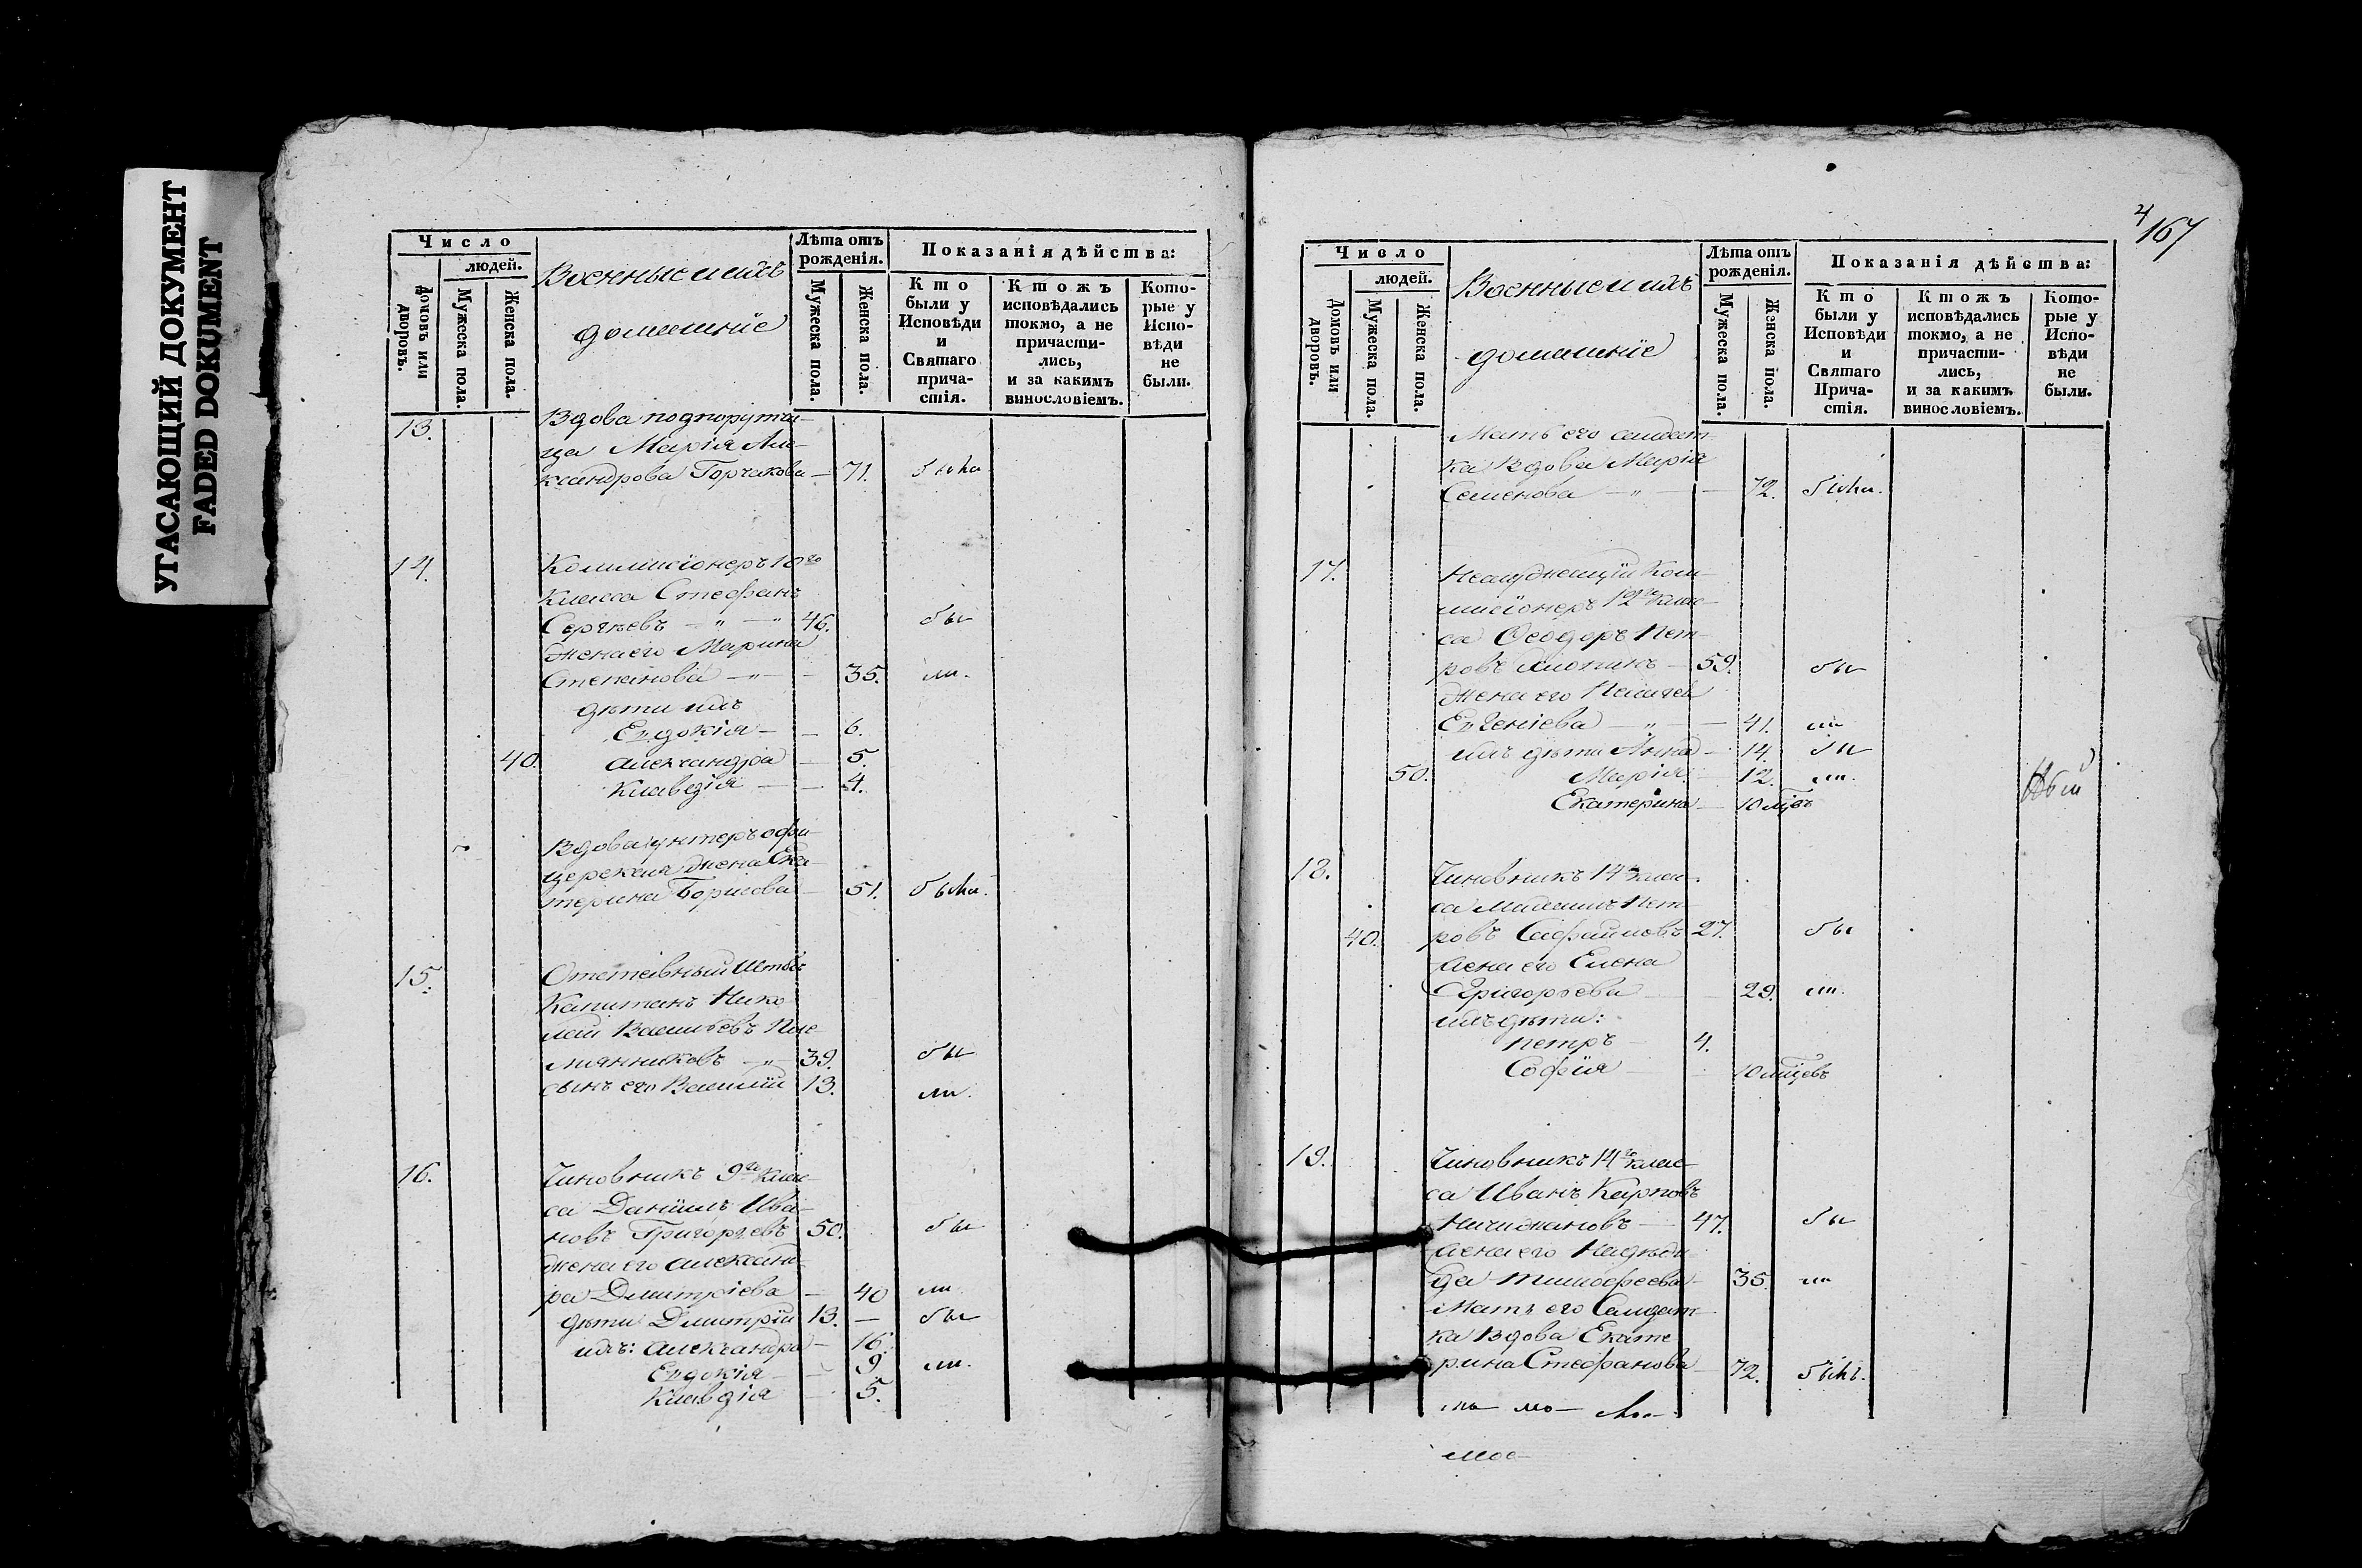 УГАСАЮЩИЙ ДОКУМЕНТ
FADED DOKUMENT
Число
людей.
Домовъ или дворовъ.
Мужеска пола.
Женска пола.
Военные и ихъ
домашніе
Лѣта отъ рожденія.
Мужеска пола.
Женска пола.
Показанія дѣйства:
Кто были у Исповѣди и Святаго причастія.
Ктожъ исповѣдались токмо, а не причастились, и за какимъ винословіемъ.
Которые у Исповѣди не были.
13. Вдова подпорутчи-
ца Марія Але-
ксандрова Горчакова — 71. была
14. Коммисіонеръ 10го
класса Стефанъ
Сергѣевъ — " — " 46. бы
жена его Марина
Степанова — " — 35. ли.
дѣти ихъ
Евдокія — 6.
40. Александра — 5.
Клавдія — 4.
Вдова унтеръ офи-
церская жена Ека-
терина Борисова — 51. была.
15. Отставный Штабсъ
Капитанъ Нико
лай Васильевъ Пле-
мянниковъ — " — 39. бы
сынъ его Василій 13. ли.
16. Чиновникъ 9го клас-
са Даніилъ Ива-
новъ Григорьевъ 50. бы
жена его Александ-
ра Дмитріева — 40 ли
дѣти Дмитрій 13. — бы
ихъ: Александра — 16.
Евдокія — 9 ли.
Клавдія — 5.
4/167
Число
людей.
Домовъ или дворовъ.
Мужеска пола.
Женска пола.
Военные и ихъ
домашніе
Лѣта отъ рожденія.
Мужеска пола.
Женска пола.
Показанія дѣйства:
Кто были у Исповѣди и Святаго Причастія.
Ктожъ исповѣдались токмо, а не причастились, и за какимъ винословіемъ.
Которые у Исповѣди не были.
Мать его солдат-
ка Вдова Марія
Семенова — " — 72. была.
17. Неслужащій Ком-
мисіонеръ 12го клас-
са Ѳеодоръ Пет-
ровъ — 59. бы
жена его
Евгеніева — " — 41. ли
ихъ дѣти Анна — 14. бы
50. Марія — 12. ли.
Екатерина — 10 мцъ
18. Чиновникъ 14го клас-
са Михаилъ Пет-
40. ровъ 27. бы
жена его Елена
Григорьева — 29. ли.
ихъ дѣти:
Петръ — 4.
Софія — 10 мцовъ
19. Чиновникъ 14го клас-
са Иванъ Карповъ
— 47. бы
жена его Надеж-
да Тимофеева — 35. ли
Мать его Солдат-
ка Вдова Екате
рина Стефанова — 72. была.